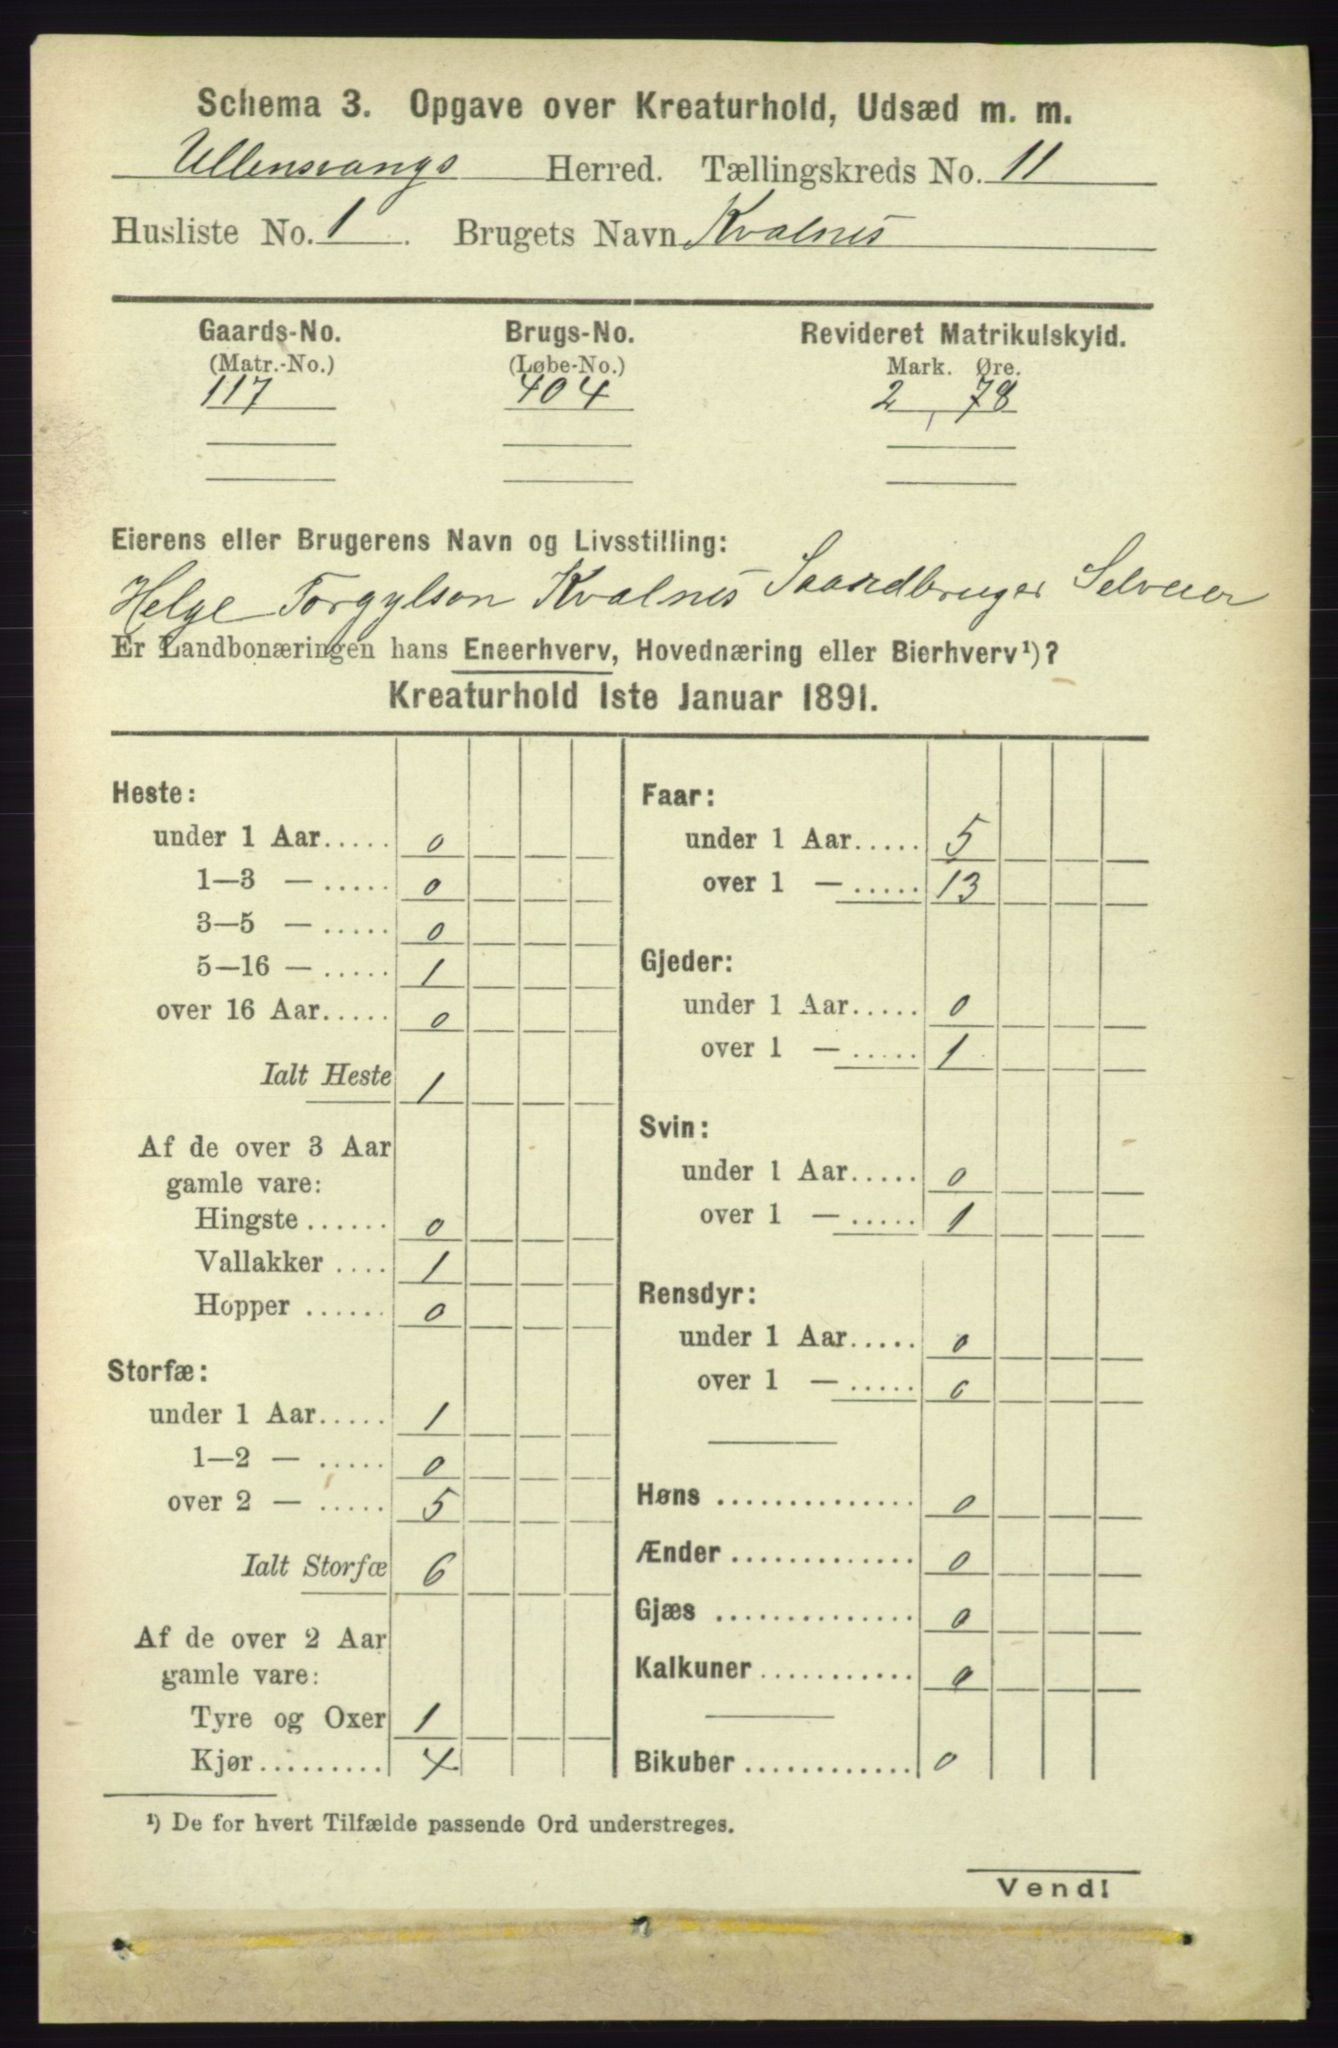 Schema 3. Opgave over Kreaturhold, Udsæd m. m.
Ullensvangs Herred. Tællingskreds No. 11
Husliste No. 1. Brugets Navn Kvalnes
Gaards-No. Brugs-No. Revideret Matrikulskyld.
(Matr.-No.) (Løbe-No.) Mark. Øre.
117 404 2, 78
Eierens eller Brugerens Navn og Livsstilling:
Helge Torgylson Kvalnes Gaardbruger Selveier
Er Landbonæringen hans Eneerhverv, Hovednæring eller Bierhverv¹)?
Kreaturhold 1ste Januar 1891.
Heste:
under 1 Aar..... 0
1—3 — ..... 0
3—5 — ..... 0
5—16 — ..... 1
over 16 Aar..... 0
Ialt Heste 1
Af de over 3 Aar
gamle vare:
Hingste ...... 0
Vallakker .... 1
Hopper ...... 0
Storfæ:
under 1 Aar..... 1
1—2 — ..... 0
over 2 — ..... 5
Ialt Storfæ 6
Af de over 2 Aar
gamle vare:
Tyre og Oxer 1
Kjør......... 4
Faar:
under 1 Aar..... 5
over 1 — ..... 13
Gjeder:
under 1 Aar..... 0
over 1 — ..... 1
Svin:
under 1 Aar..... 0
over 1 — ..... 1
Rensdyr:
under 1 Aar..... 0
over 1 — ..... 0
Høns .............. 0
Ænder ............. 0
Gjæs .............. 0
Kalkuner ........... 0
Bikuber ............ 0
¹) De for hvert Tilfælde passende Ord understreges.
Vend!